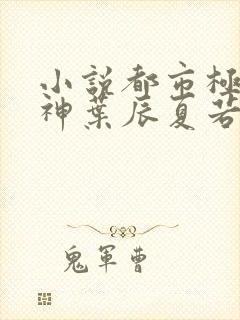 小説都市極
神葉辰夏若
鬼軍曹